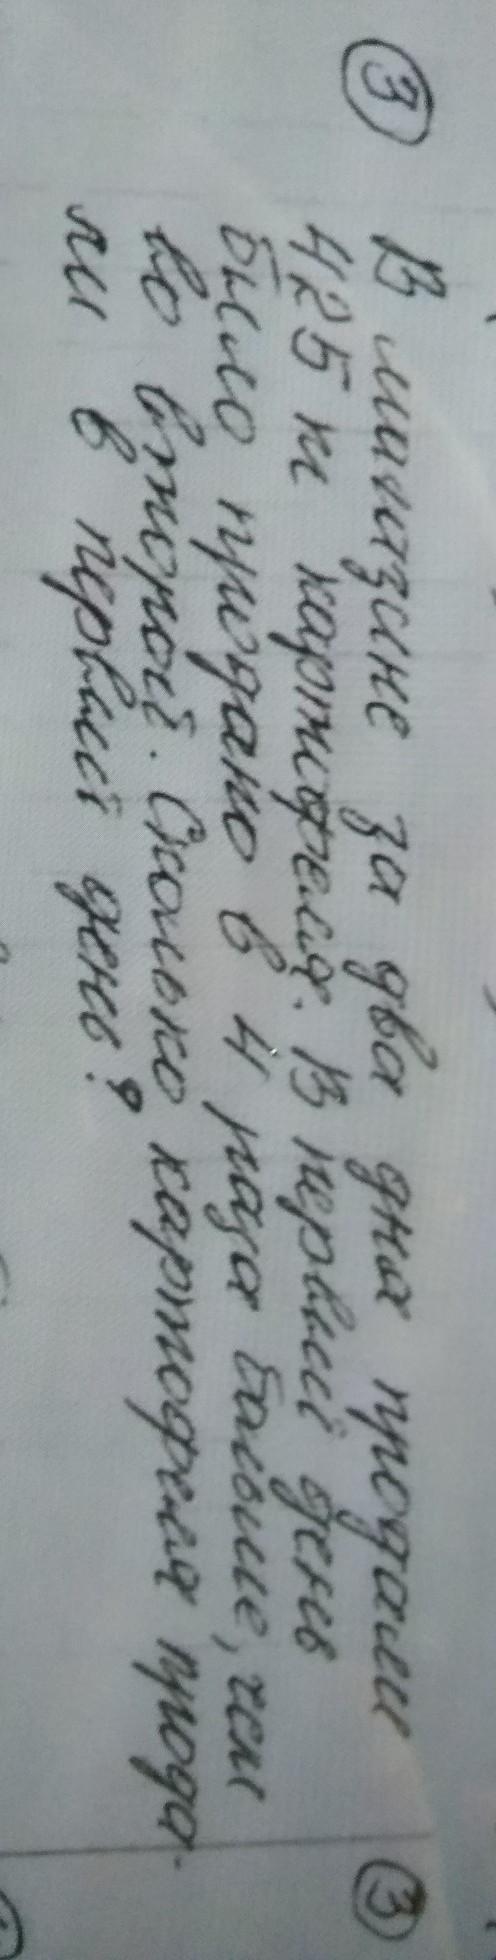 3
В магазине за два дня продали
425 кг картофеля. В первый день
было продано в 4 раза больше, чем
во второй. Сколько картофеля прода-
ли в первый день?
3